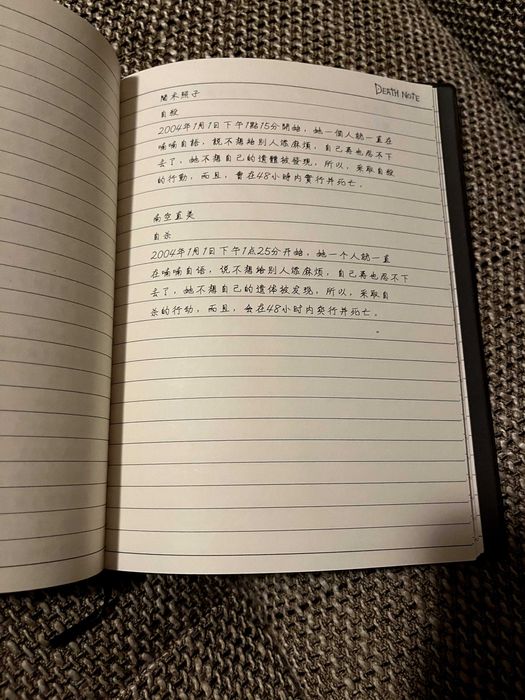 DEATH NOTE
間木照子
自殺
2004年1月1日下午1點15分開始，她一個人就一直在
喃喃自語，說不想給別人添麻煩，自己再也忍不下
去了，她不想自己的遺體被發現，所以，采取自殺
的行動，而且，會在48小時內實行并死亡。
南空直美
自杀
2004年1月1日下午1点25分开始，她一个人就一直
在喃喃自语，说不想给别人添麻烦，自己再也忍不下
去了，她不想自己的遗体被发现，所以，采取自
杀的行动，而且，会在48小时内实行并死亡。